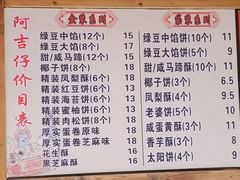 阿吉仔价目表
盒装系列
绿豆中馅(12个) 15
绿豆大馅(8个) 15
甜/咸马蹄(12个) 15
椰子饼(8个) 16
精装凤梨酥(6个) 18
精装红豆饼(6个) 18
精装海苔饼(6个) 18
精装蜜柚饼(6个) 18
精装肉松饼(6个) 18
厚实蛋卷原味 18
厚实蛋卷芝麻 18
花生酥 16
黑芝麻酥 16
袋装系列
绿豆中馅饼(10个) 11
绿豆大馅饼(5个) 9
甜/咸马蹄酥(10个) 11
椰子饼(3个) 6.5
凤梨酥(4个) 9.5
老婆饼(5个) 9
咸蛋黄酥(3个) 11
香芋酥(3个) 9
太阳饼(4个) 9